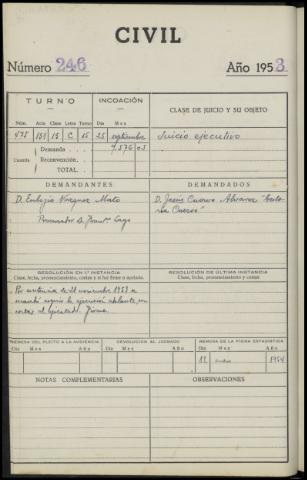 CIVIL
Número 246 Año 1953
TURNO INCOACIÓN CLASE DE JUICIO Y SU OBJETO
Núm. Año Clase Letra Turno Día Mes
475 15 C 15 25 septiembre Juicio ejecutivo
Cuantía Demanda 7.576 05
Reconvención
TOTAL
DEMANDANTES DEMANDADOS
D. Eulogio Vazquez Mato D. Jesús Cuervo Alvarez
Procurador D.
RESOLUCIÓN EN 1.ª INSTANCIA RESOLUCIÓN DE ÚLTIMA INSTANCIA
Clase, fecha, pronunciamiento, costas y si fué firme o apelada. Clase, fecha, pronunciamiento y costas.
Por sentencia de 21 noviembre 1953 se
mandó seguir la ejecución adelante, con
costas al ejecutado. Firme.
REMESA DEL PLEITO A LA AUDIENCIA DEVOLUCIÓN AL JUZGADO REMESA DE LA FICHA ESTADÍSTICA
Día Mes Año Día Mes Año Día Mes Año
12 1954
NOTAS COMPLEMENTARIAS OBSERVACIONES